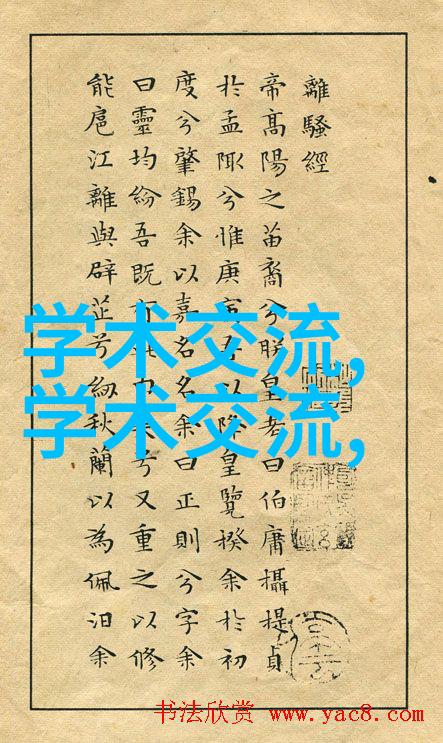 離騷經
帝高陽之苗裔兮朕皇考曰伯庸攝提貞
於孟陬兮惟庚寅吾以降皇覽揆余於初
度兮肇錫余以嘉名名余曰正則兮字余
曰靈均紛吾既有兮又重之以修
能扈江離與辟芷兮紉秋蘭以為佩汩余
学术交流,
学术交流,
书法欣赏 www.yac8.com